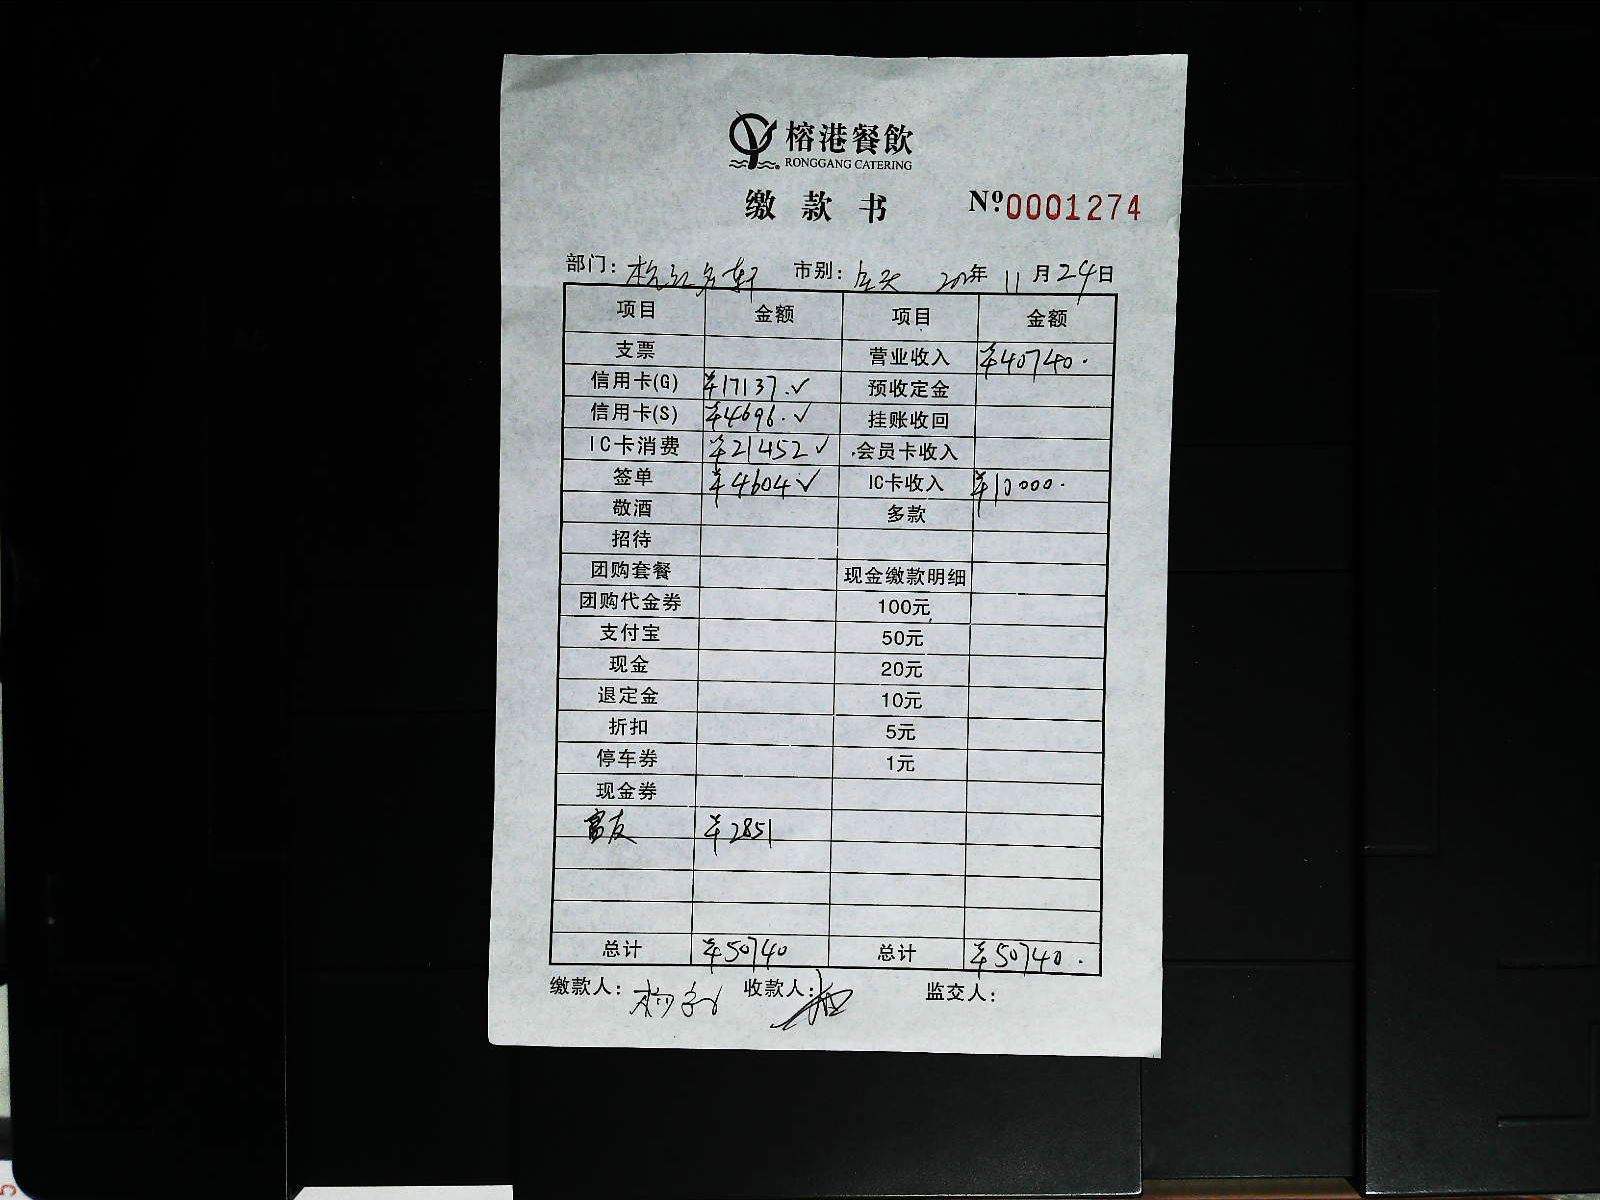 榕港餐飲
RONGGANG CATERING
缴款书 Nº0001274
部门： 市别：全天 年 11月24日
项目 金额 项目 金额
支票 营业收入 ¥40740.
信用卡(G) ¥17137.✓ 预收定金
信用卡(S) ¥4696.✓ 挂账收回
IC卡消费 ¥21452✓ 会员卡收入
签单 ¥4604✓ IC卡收入 ¥10000.
敬酒 多款
招待
团购套餐 现金缴款明细
团购代金券 100元
支付宝 50元
现金 20元
退定金 10元
折扣 5元
停车券 1元
现金券
富友 ¥2851
总计 ¥50740 总计 ¥50740.
缴款人： 收款人： 监交人：